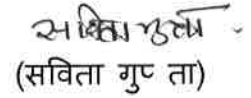 सविता गुप्ता
(सविता गुप्‍ ता)